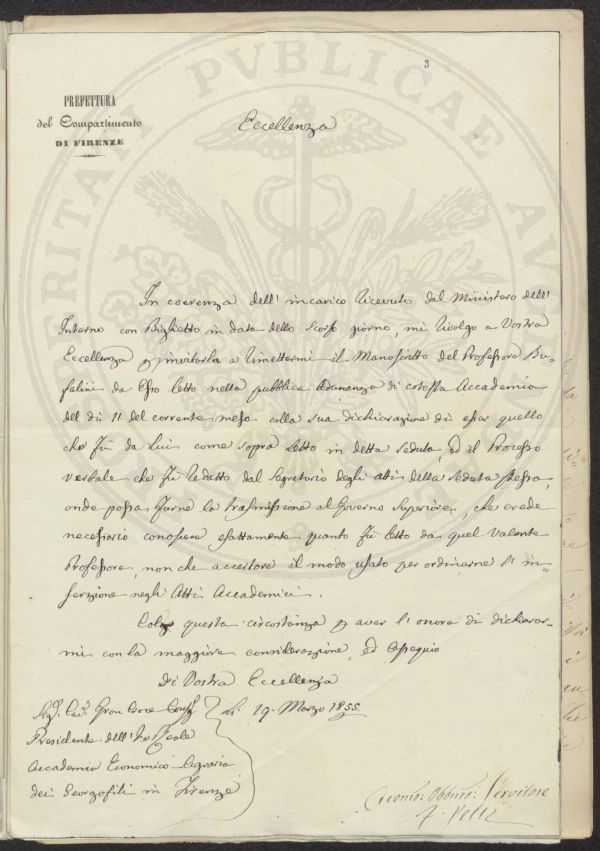 3
PREFETTURA
del Compartimento
DI FIRENZE
Eccellenza
In coerenza dell' incarico ricevuto dal Ministero dell'
Interno con Biglietto in data dello scorso giorno, mi rivolgo a Vostra
Eccellenza p invitarla a rimettermi il Manoscritto del Professore Bu-
falini da Esso letto nella pubblica adunanza di cotesta Accademia
del dì 11. del corrente mese colla sua dichiarazione di esser quello
che fù da Lui come sopra letto in detta seduta, ed il Processo
verbale che fù redatto dal Segretario degli atti della seduta stessa,
onde possa farne la trasmissione al Governo Superiore, che crede
necessario conoscere esattamente quanto fù letto da quel valente
Professore, non che accertare il modo usato per ordinarne l' in=
serzione negli Atti Accademici.
Colgo questa circostanza p aver l' onore di dichiarar-
mi con la maggiore considerazione, ed ossequio
Di Vostra Eccellenza
Sig. Cav. Gran Croce
Li 19. Marzo 1855
Presidente dell' I e Reale
Accademia Economico Agraria
dei Georgofili in Firenze
Obblmo: Servitore
PVBLICAE